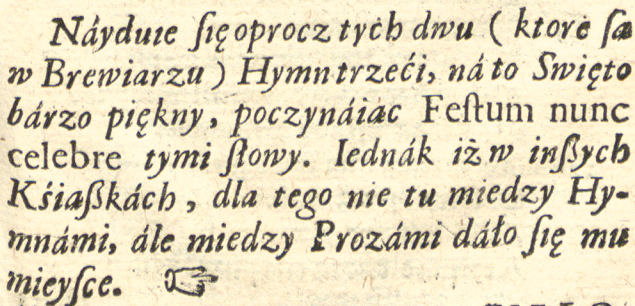 Náyduie ſię oprocz tych dwu ( ktore ſą
w Brewiarzu ) Hymn trzeći, ná to Swięto
bárzo piękny, poczynáiąc Feſtum nunc
celebre tymi ſłowy. Iednák iż w inßych
Kśiąßkách, dla tego nie tu miedzy Hy-
mnámi, ále miedzy Prozámi dáło ſię mu
mieyſce. ☞